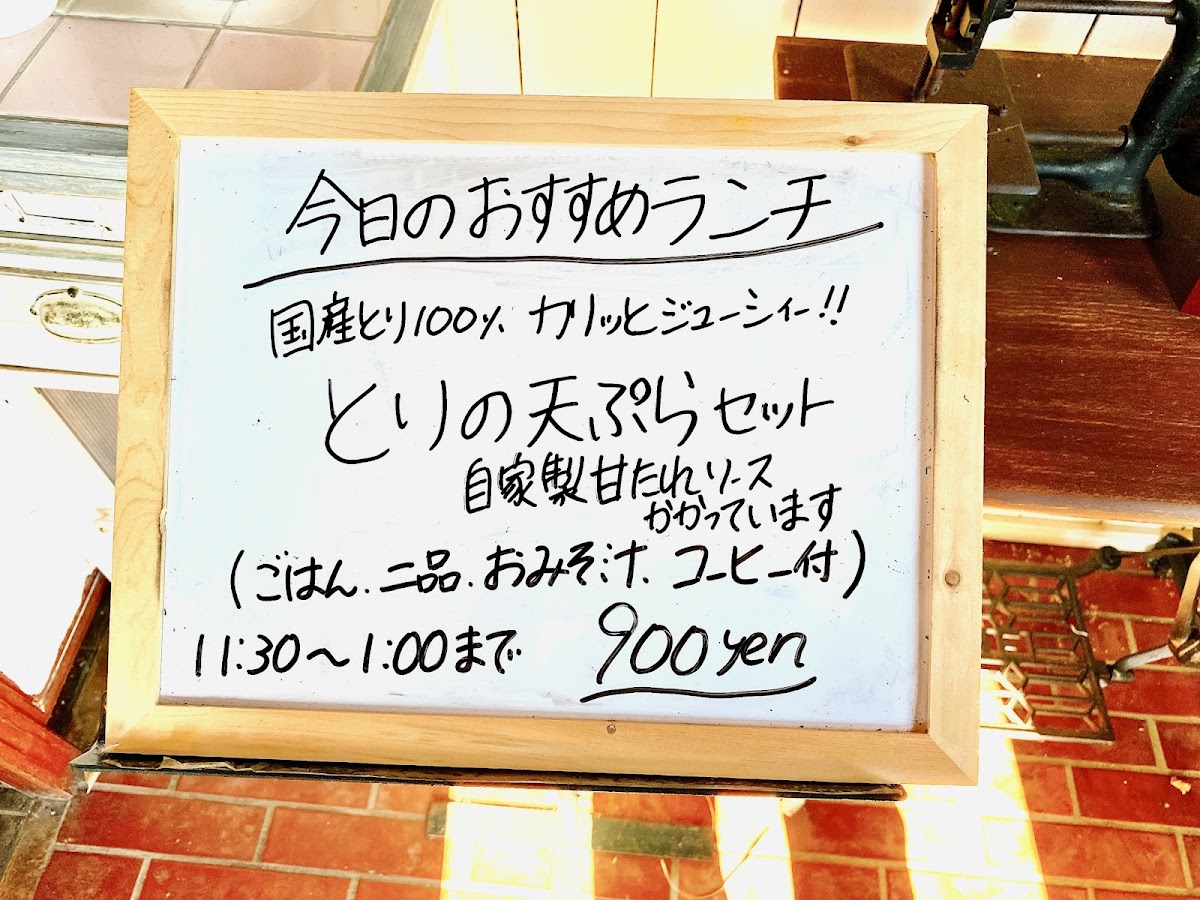 今日のおすすめランチ
国産とり100% カリッとジューシィー!!
とりの天ぷらセット
自家製甘たれソース
かかっています
(ごはん.二品.おみそ汁.コーヒー付)
11:30～1:00まで 900yen